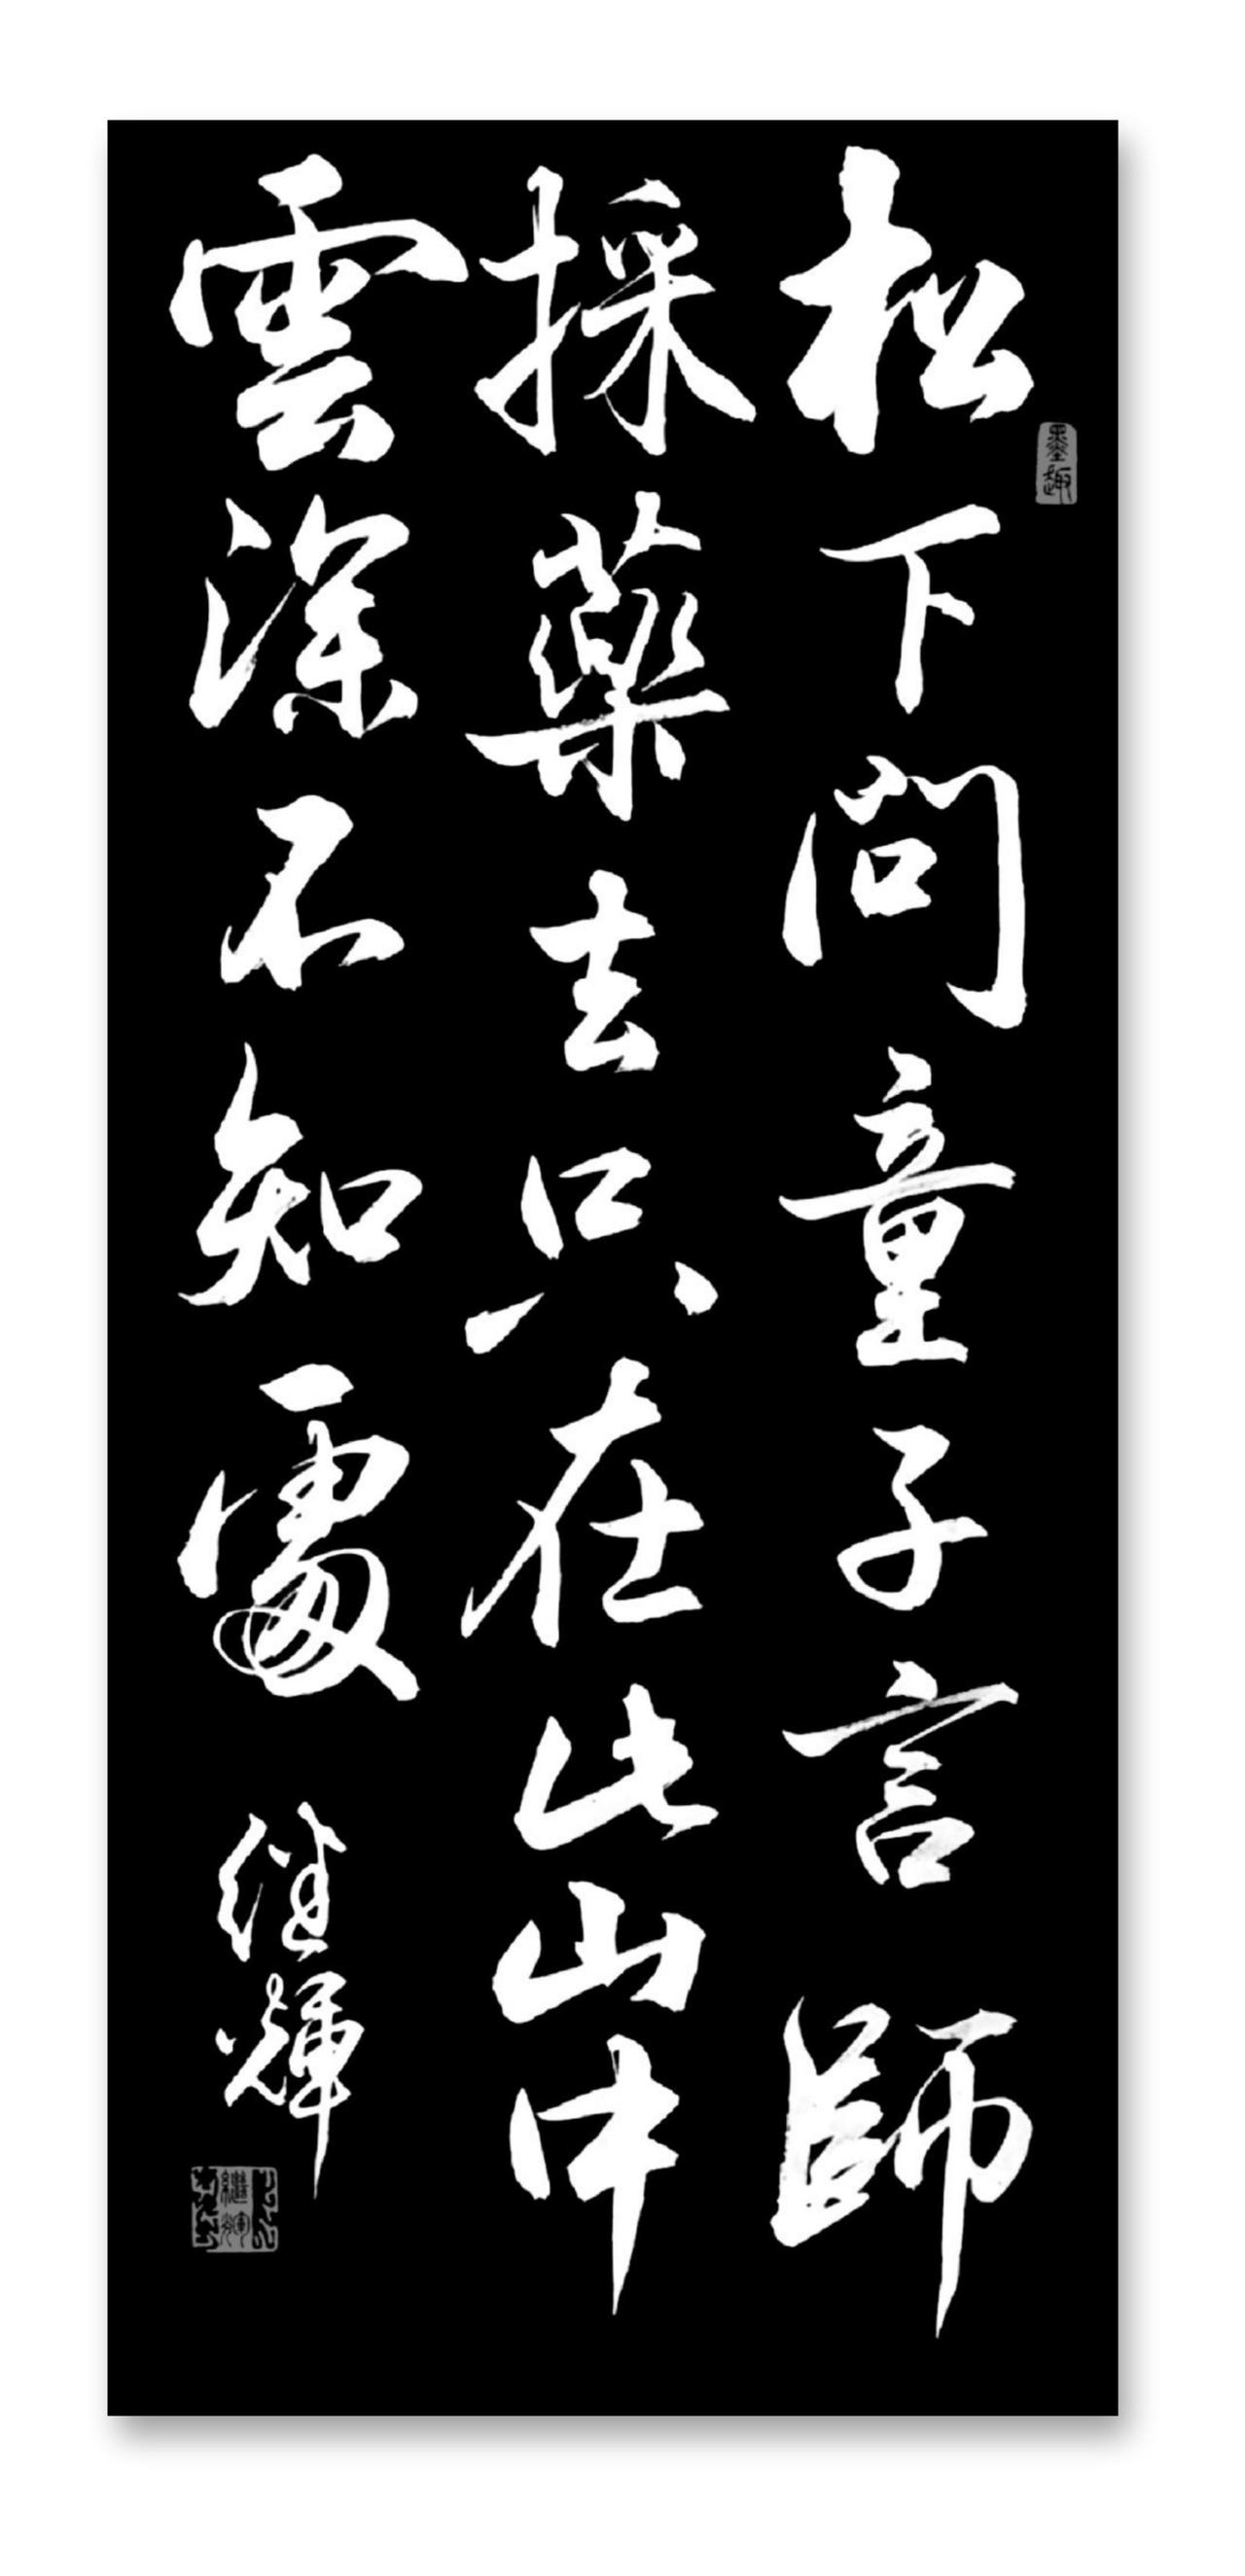 松下問童子言師
採薬去只在此山中
雲深不知處
继輝
墨趣
繼輝